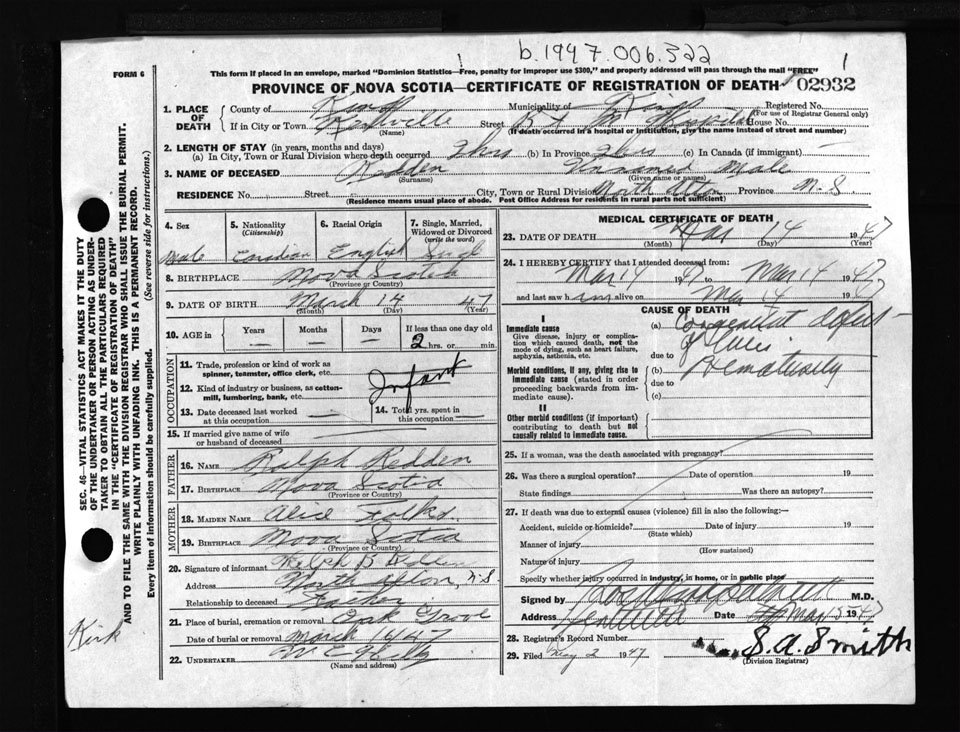 b.1947.006.322
1
FORM 6
This form if placed in an envelope, marked "Dominion Statistics—Free, penalty for improper use $300," and properly addressed will pass through the mail "FREE"
PROVINCE OF NOVA SCOTIA—CERTIFICATE OF REGISTRATION OF DEATH 02932
1. PLACE OF DEATH
County of Kings Municipality of Kings Registered No.
(For use of Registrar General only)
If in City or Town Kentville Street House No.
(Name) (If death occurred in a hospital or institution, give the name instead of street and number)
2. LENGTH OF STAY (in years, months and days)
(a) In City, Town or Rural Division where death occurred 2 hrs (b) In Province 2 hrs (c) In Canada (if immigrant)
3. NAME OF DECEASED Redden Unnamed Male
(Surname) (Given name or names)
RESIDENCE No. Street City, Town or Rural Division North Alton Province N.S.
(Residence means usual place of abode. Post Office Address for residents in rural parts not sufficient)
4. Sex 5. Nationality (Citizenship) 6. Racial Origin 7. Single, Married, Widowed or Divorced (write the word)
Male Canadian English Single
8. BIRTHPLACE Nova Scotia
(Province or Country)
9. DATE OF BIRTH March 14 47
(Month) (Day) (Year)
10. AGE in Years Months Days If less than one day old
— — — 2 hrs. or min.
OCCUPATION
11. Trade, profession or kind of work as spinner, teamster, office clerk, etc.
Infant
12. Kind of industry or business, as cotton-mill, lumbering, bank, etc.
13. Date deceased last worked at this occupation
14. Total yrs. spent in this occupation
15. If married give name of wife or husband of deceased
FATHER
16. NAME Ralph Redden
17. BIRTHPLACE Nova Scotia
(Province or Country)
MOTHER
18. MAIDEN NAME Alice Folks
19. BIRTHPLACE Nova Scotia
(Province or Country)
20. Signature of informant Ralph B Redden
Address North Alton, N.S.
Relationship to deceased Father
21. Place of burial, cremation or removal Oak Grove
Date of burial or removal March 16 47
22. UNDERTAKER
(Name and address)
MEDICAL CERTIFICATE OF DEATH
23. DATE OF DEATH Mar 14 1947
(Month) (Day) (Year)
24. I HEREBY CERTIFY that I attended deceased from:
Mar 14 1947 to Mar 14 1947
and last saw him alive on Mar 14 1947
CAUSE OF DEATH
I
Immediate cause
Give disease, injury or complication which caused death, not the mode of dying, such as heart failure, asphyxia, asthenia, etc.
(a) Congenital
due to
Morbid conditions, if any, giving rise to immediate cause (stated in order proceeding backwards from immediate cause).
(b) Prematurity
due to
(c)
II
Other morbid conditions (if important) contributing to death but not causally related to immediate cause.
25. If a woman, was the death associated with pregnancy?
26. Was there a surgical operation? Date of operation 19
State findings Was there an autopsy?
27. If death was due to external causes (violence) fill in also the following:—
Accident, suicide or homicide? Date of injury 19
(State which)
Manner of injury
(How sustained)
Nature of injury
Specify whether injury occurred in industry, in home, or in public place
Signed by M.D.
Address Kentville Date Mar 15 1947
28. Registrar's Record Number
29. Filed May 2 1947 S.A. Smith
(Division Registrar)
SEC. 46—VITAL STATISTICS ACT MAKES IT THE DUTY
OF THE UNDERTAKER OR PERSON ACTING AS UNDER-
TAKER TO OBTAIN ALL THE PARTICULARS REQUIRED
IN THE "CERTIFICATE OF REGISTRATION OF DEATH"
AND TO FILE THE SAME WITH THE DIVISION REGISTRAR WHO SHALL ISSUE THE BURIAL PERMIT.
WRITE PLAINLY WITH UNFADING INK. THIS IS A PERMANENT RECORD.
Every item of information should be carefully supplied. (See reverse side for instructions.)
Kirk